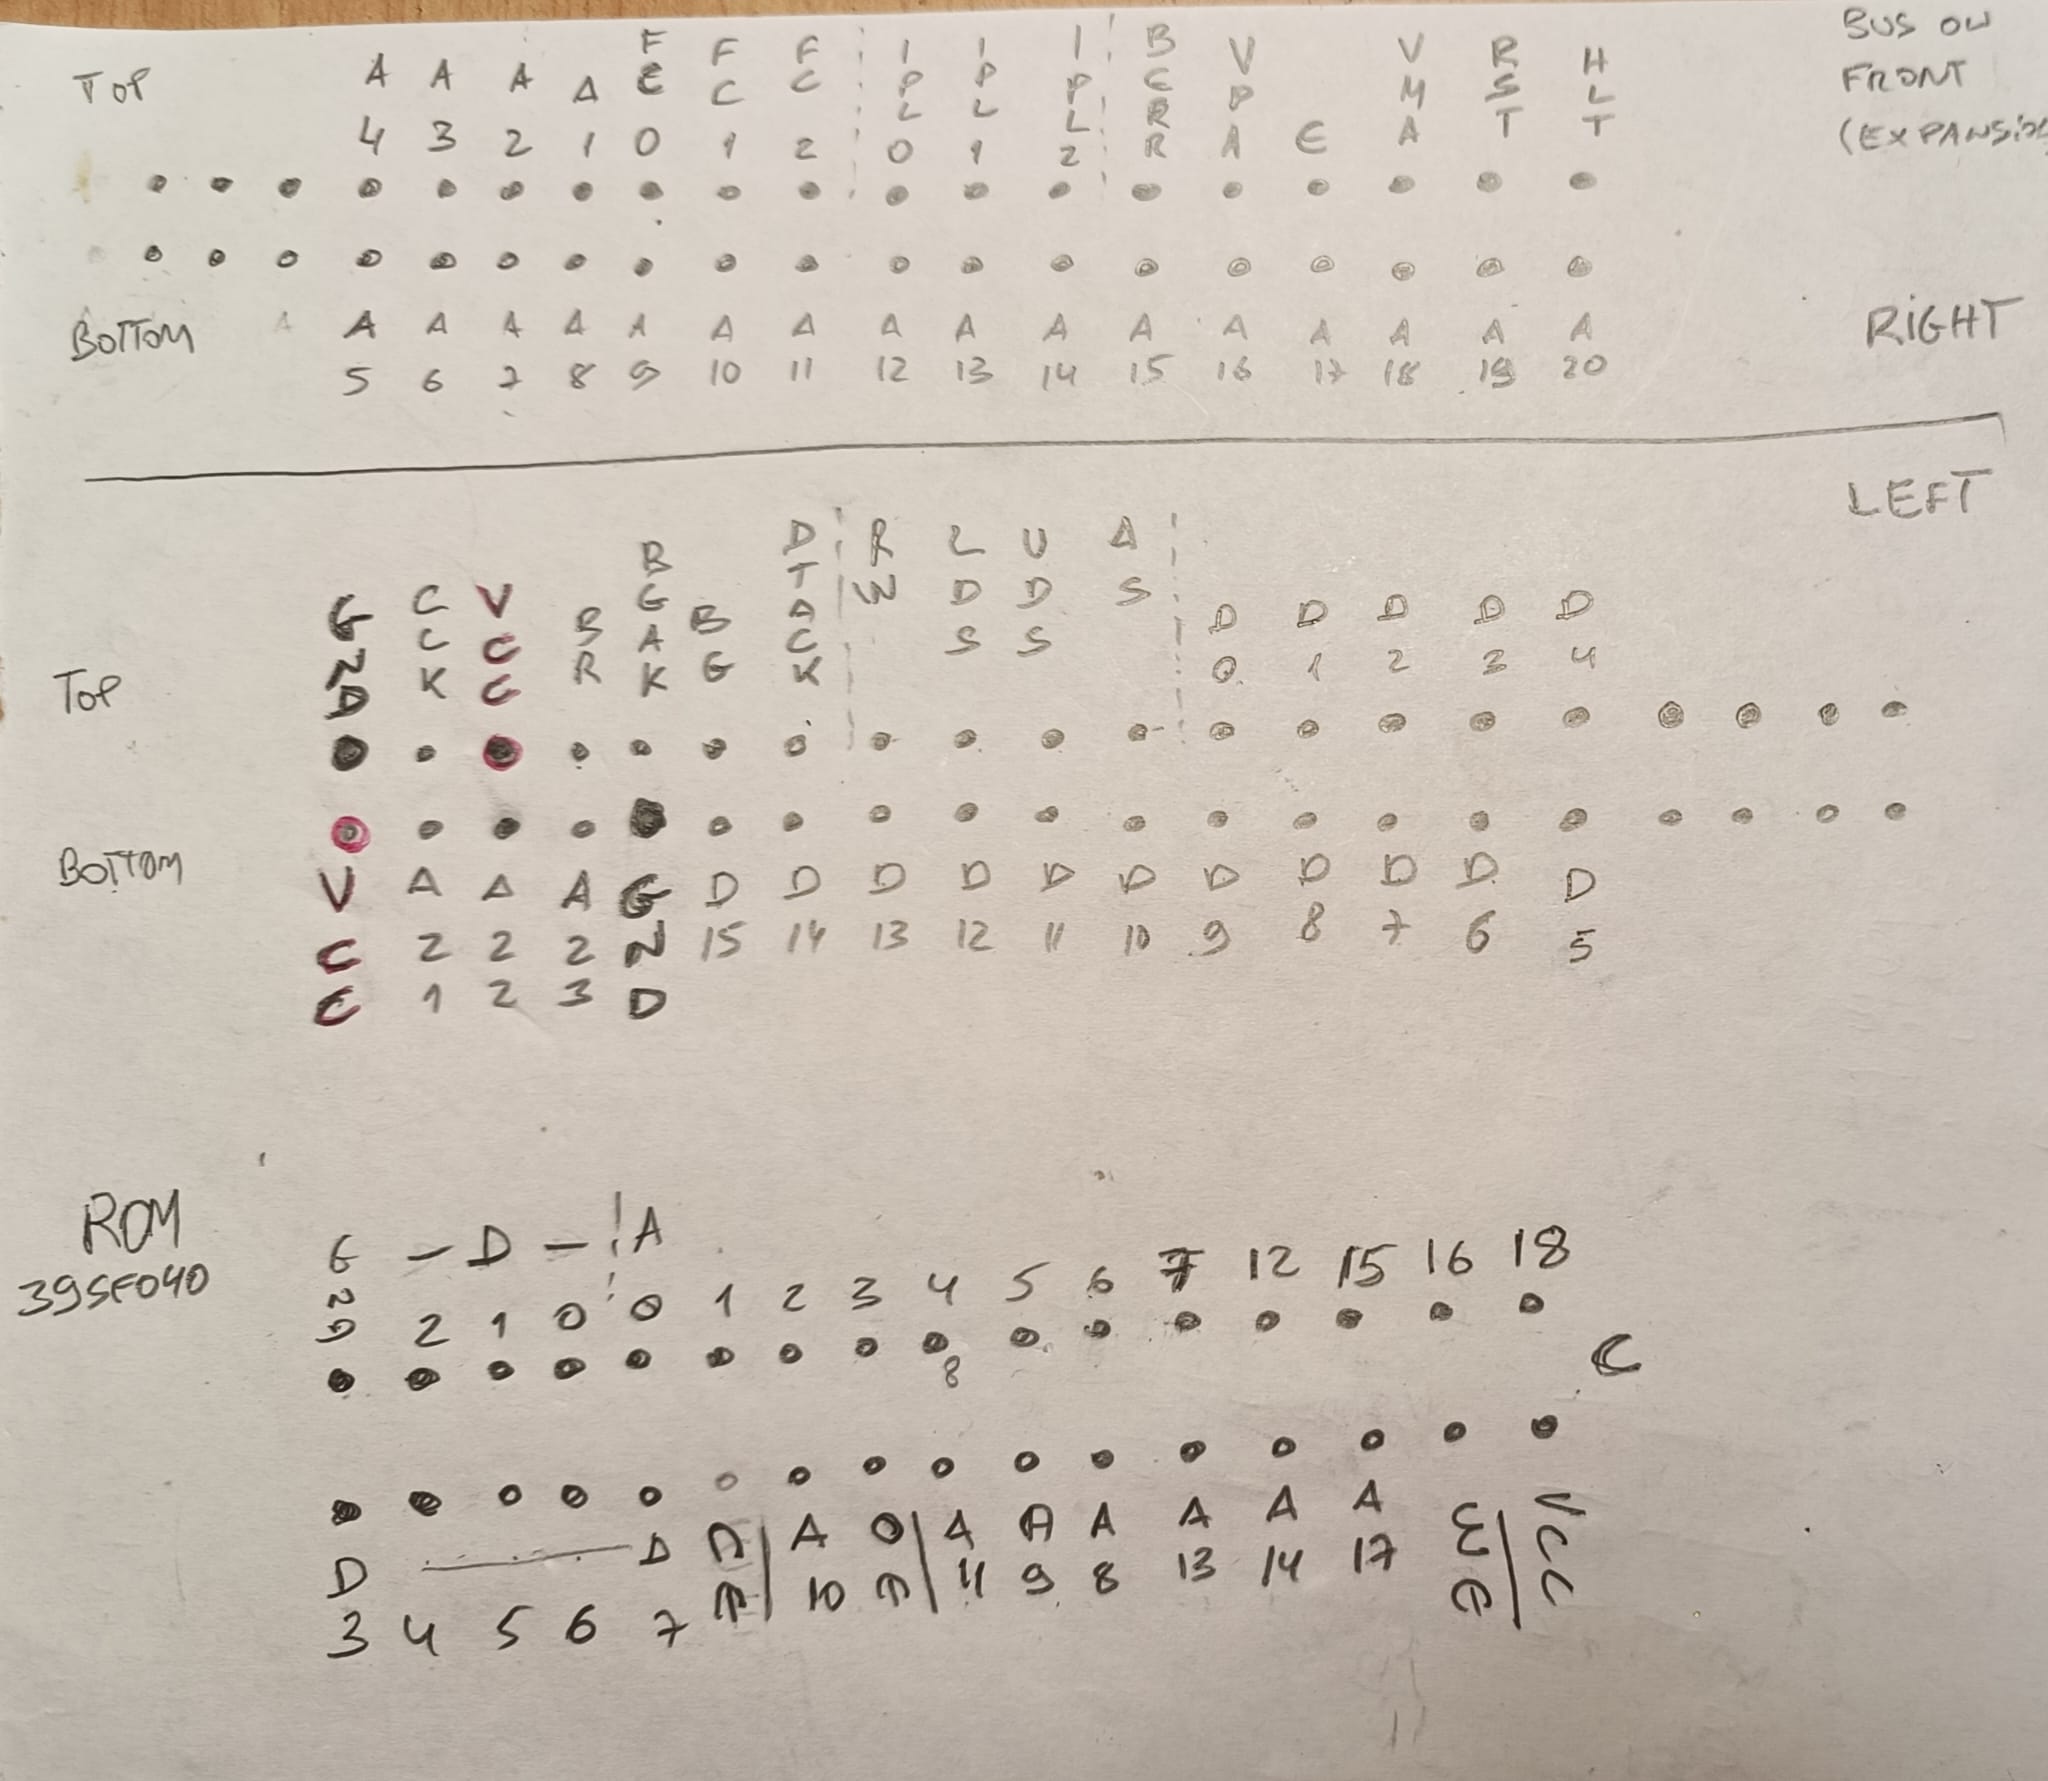 BUS ON
FRONT
(EXPANSIO
TOP A4 A3 A2 A1 FC0 FC1 FC2 IPL0 IPL1 IPL2 BERR VPA E VMA RST HLT
BOTTOM A A5 A6 A7 A8 A9 A10 A11 A12 A13 A14 A15 A16 A17 A18 A19 A20
RIGHT
LEFT
TOP GND CLK VCC BR BGAK BG DTACK RW LDS UDS AS D0 D1 D2 D3 D4
BOTTOM VCC A21 A22 A23 GND D15 D14 D13 D12 D11 D10 D9 D8 D7 D6 D5
ROM
39SF040
GND – D – A
2 1 0 0 1 2 3 4 5 6 7 12 15 16 18
8
C
D D A O A A A A A A VCC
3 4 5 6 7 10 11 9 8 13 14 17